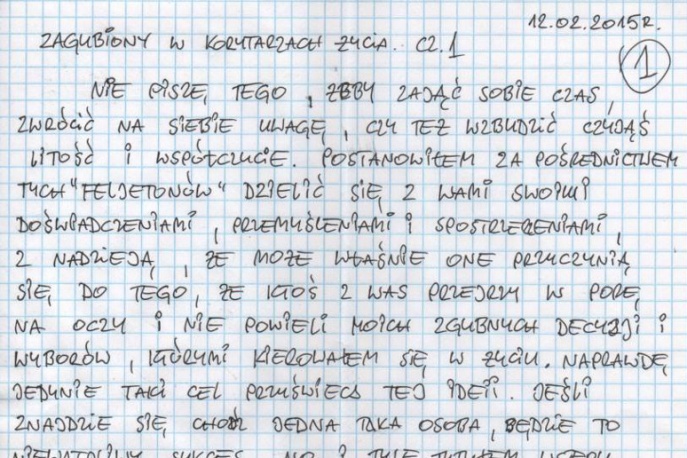 12.02.2015r.
ZAGUBIONY W KORYTARZACH ŻYCIA. CZ.1
1
NIE PISZĘ TEGO, ŻEBY ZAJĄĆ SOBIE CZAS,
ZWRÓCIĆ NA SIEBIE UWAGĘ, CZY TEŻ WZBUDZIĆ CZYJĄŚ
LITOŚĆ I WSPÓŁCZUCIE. POSTANOWIŁEM ZA POŚREDNICTWEM
TYCH "FELJETONÓW" DZIELIĆ SIĘ Z WAMI SWOIMI
DOŚWIADCZENIAMI, PRZEMYŚLENIAMI I SPOSTRZEŻENIAMI,
Z NADZIEJĄ, ŻE MOŻE WŁAŚNIE ONE PRZYCZYNIĄ
SIĘ DO TEGO, ŻE KTOŚ Z WAS PRZEJRZY W PORĘ
NA OCZY I NIE POWIELI MOICH ZGUBNYCH DECYZJI I
WYBORÓW, KTÓRYMI KIEROWAŁEM SIĘ W ŻYCIU. NAPRAWDĘ
JEDYNIE TAKI CEL PRZYŚWIECA TEJ IDEII. JEŚLI
ZNAJDZIE SIĘ CHOĆ JEDNA TAKA OSOBA, BĘDZIE TO
SUKCES. NO I TYLE TYTUŁEM